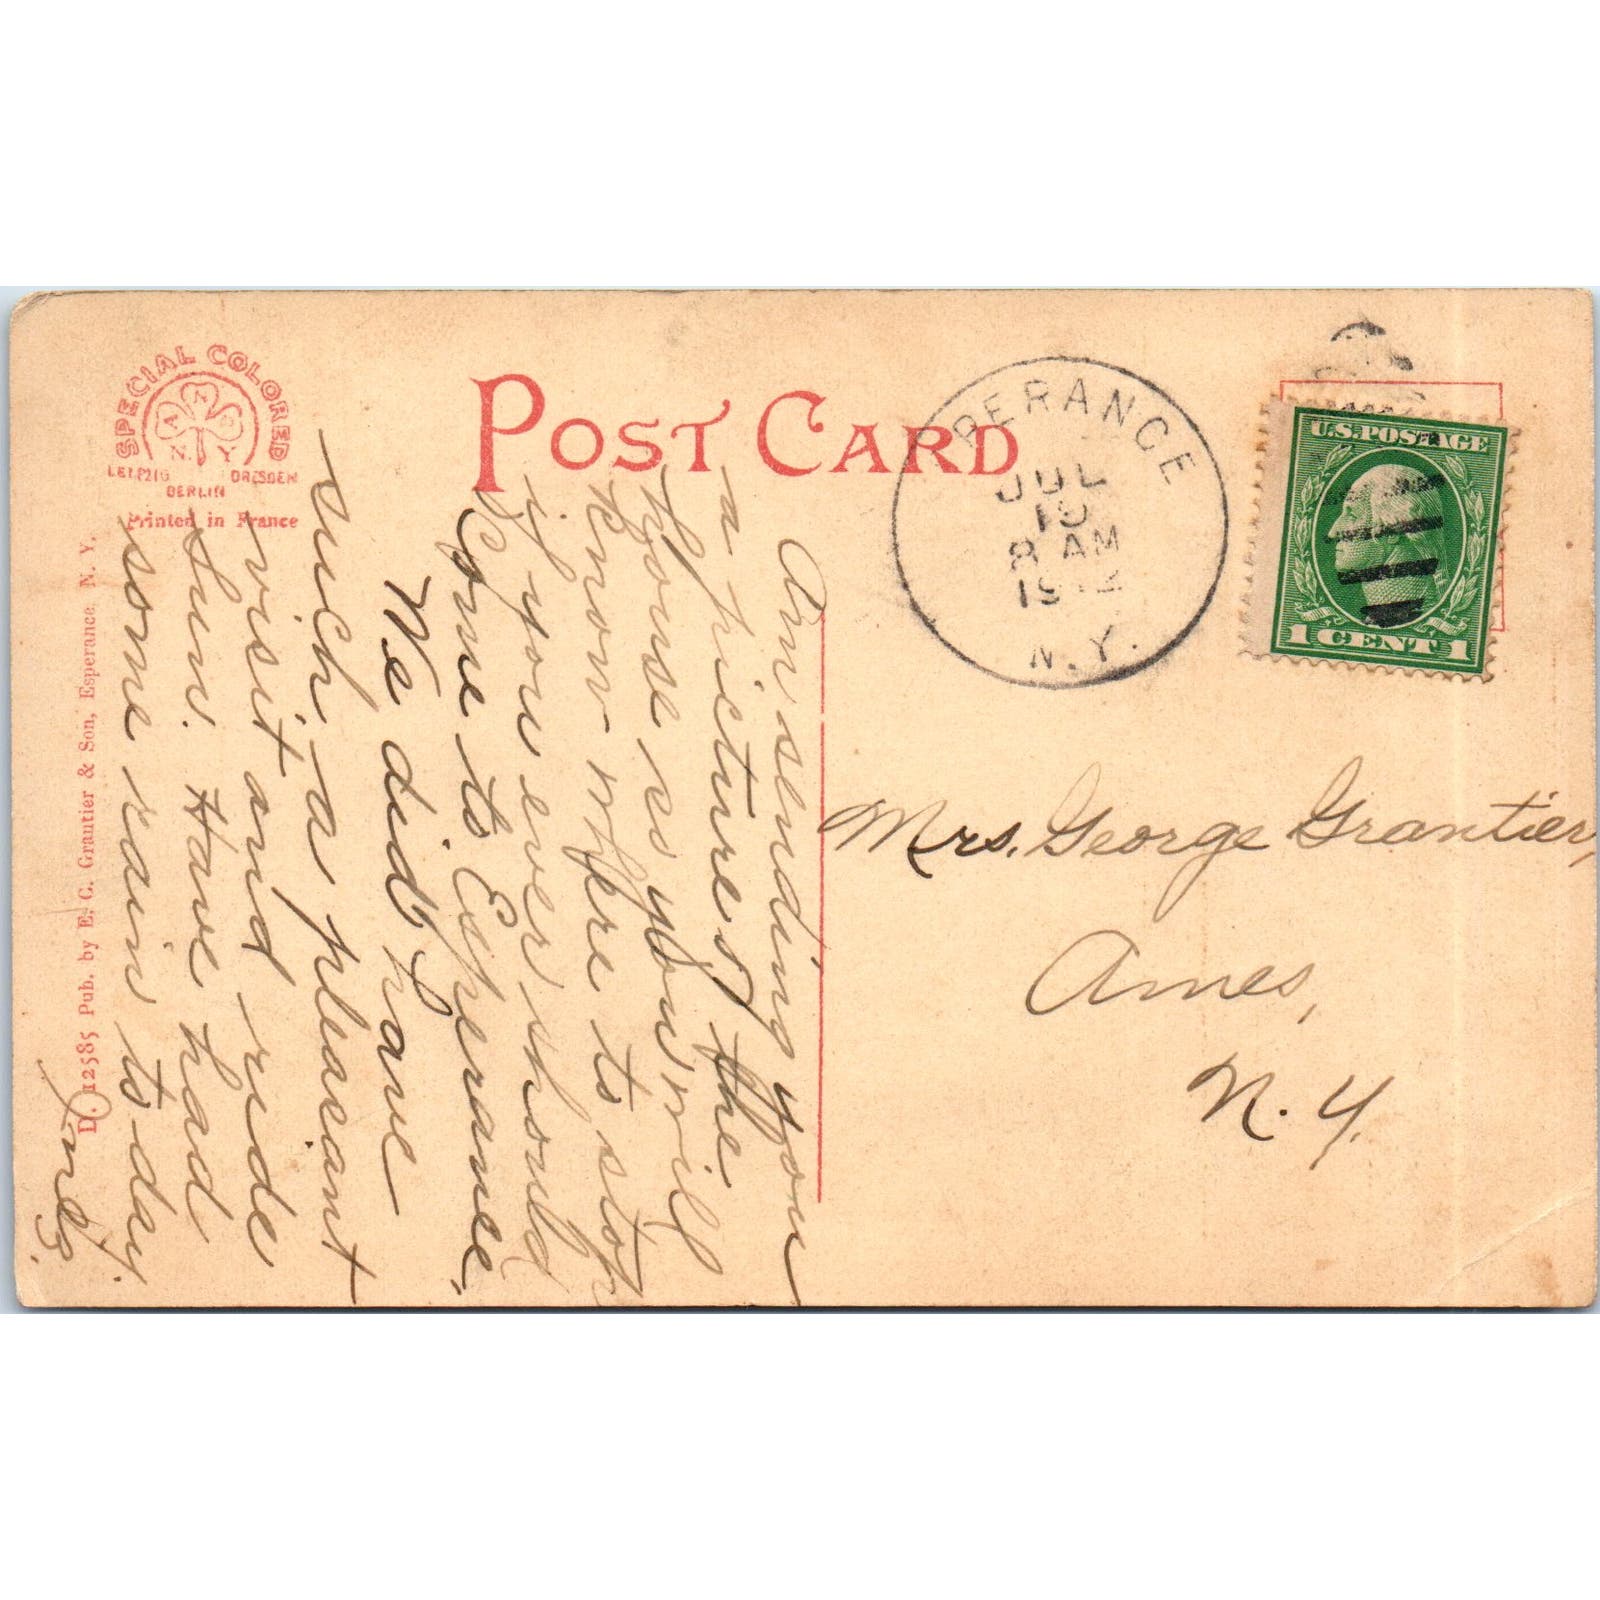 SPECIAL COLORED
A N C
N. Y
LEIPZIG DRESDEN
BERLIN
Printed in France
POST CARD
PERANCE
JUL
8 AM
1912
N. Y.
U.S. POSTAGE
1 CENT 1
D. 12585 Pub. by E. C. Grantier & Son, Esperance, N. Y.
Am sending you
a picture of the
house so you will
know where to stop
if you ever should
Come to Esperance.
We did have
such a pleasant
visit and ride
Sun. Have had
some rain to-day.
Inez.
Mrs. George Grantier,
Ames,
N. Y.